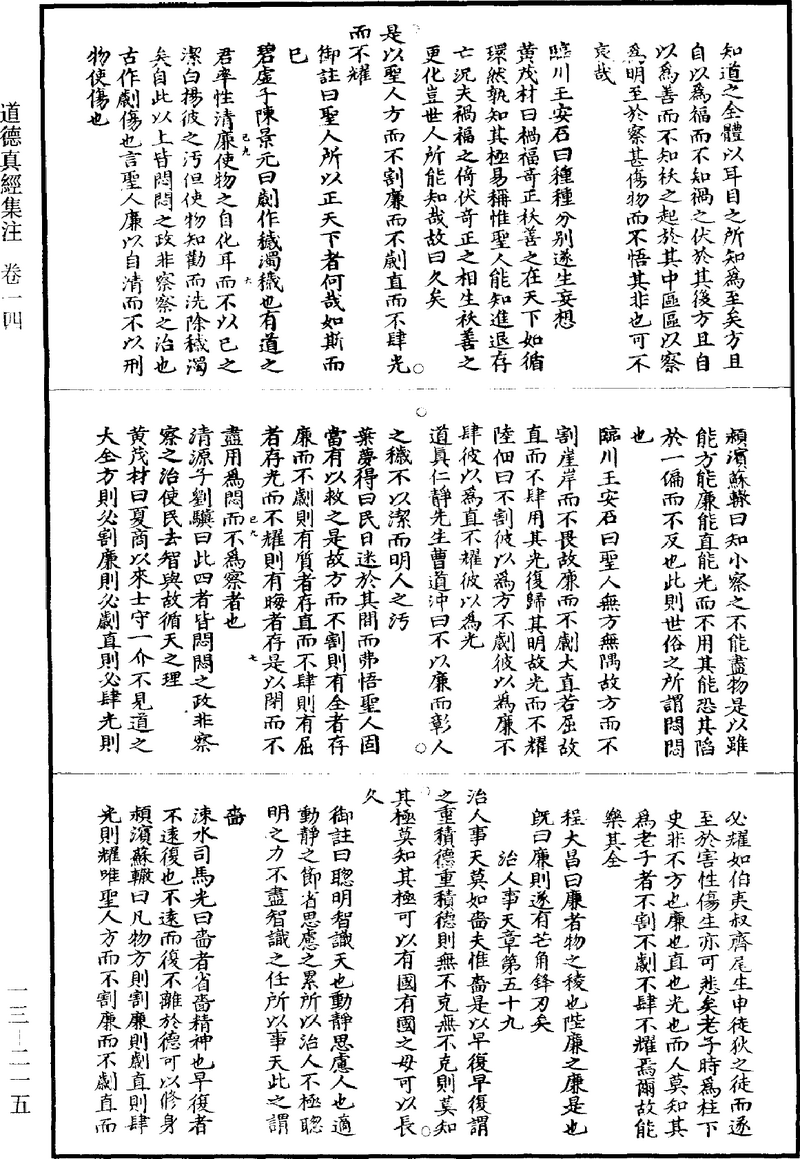 知道之全體以耳目之所知為至矣方且
自以為福而不知禍之伏於其後方且自
以為善而不知秩之起於其中區區以察
為明至於察甚傷物而不悟其非也可不
哀哉
臨川王安石曰種種分别遂生妄想
黃茂材曰禍福奇正秩善之在天下如循
環然孰知其極易稱惟聖人能知進退存
亡況夫禍福之倚伏奇正之相生秩善之
更化豈世人所能知哉故曰久矣
是以聖人方而不割廉而不劌直而不肆光
而不耀
御註曰聖人所以正天下者何哉如斯而
已
碧虛子陳景元曰劌作穢濁穢也有道之
君率性清廉使物之自化耳而不以己之
潔白揚彼之汚但使物知勸而洗除穢濁
矣自此以上皆悶悶之政非察察之治也
古作劌傷也言聖人廉以自清而不以刑
物使傷也
潁濱蘇轍曰知小察之不能盡物是以雖
能方能廉能直能光而不用其能恐其陷
於一偏而不反也此則世俗之所謂悶悶
也
臨川王安石曰聖人無方無隅故方而不
割崖岸而不畏故廉而不劌大直若屈故
直而不肆用其光復歸其明故光而不耀
陸佃曰不割彼以為方不劌彼以為廉不
肆彼以為直不耀彼以為光
道真仁靜先生曹道沖曰不以廉而彰人
之穢不以潔而明人之汚
葉夢得曰民日迷於其間而弗悟聖人固
當有以救之是故方而不割則有全者存
廉而不劌則有質者存直而不肆則有屈
者存光而不耀則有晦者存是以閉而不
盡用為悶而不為察者也
清源子劉驥曰此四者皆悶悶之政非察
察之治使民去智與故循天之理
黃茂材曰夏商以來士守一介不見道之
大全方則必割廉則必劌直則必肆光則
必耀如伯夷叔齊尾生申徒狄之徒而遂
至於害性傷生亦可悲矣老子時為柱下
史非不方也廉也直也光也而人莫知其
為老子者不割不劌不肆不耀焉爾故能
樂其全
程大昌曰廉者物之稜也陛廉之廉是也
既曰廉則遂有芒角鋒刃矣
治人事天章第五十九
治人事天莫如嗇夫惟嗇是以早復早復謂
之重積德重積德則無不克無不克則莫知
其極莫知其極可以有國有國之母可以長
久
御註曰聰明智識天也動靜思慮人也適
動靜之節省思慮之累所以治人不極聰
明之力不盡智識之任所以事天此之謂
嗇
涑水司馬光曰嗇者省嗇精神也早復者
不遠復也不遠而復不離於德可以修身
潁濱蘇轍曰凡物方則割廉則劌直則肆
光則耀唯聖人方而不割廉而不劌直而
道德真經集注 卷一四
一三—二一五